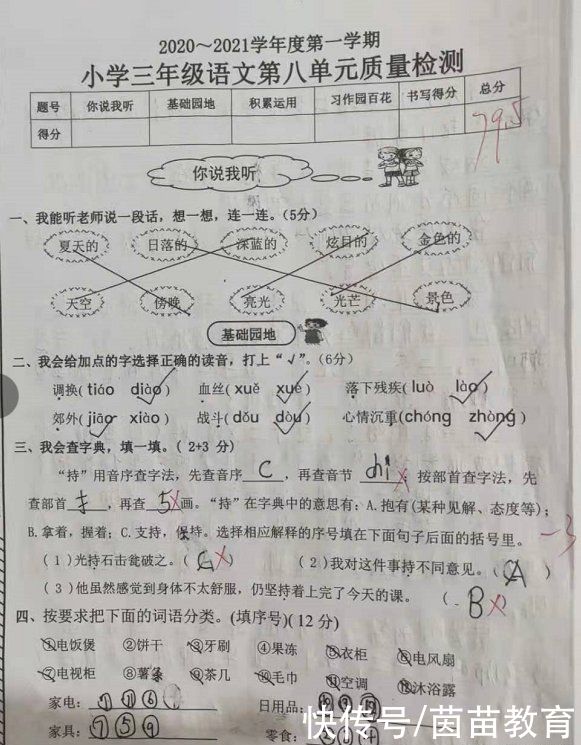 2020～2021学年度第一学期
小学三年级语文第八单元质量检测
题号 你说我听 基础园地 积累运用 习作园百花 书写得分 总分
得分 79.5
你说我听
一、我能听老师说一段话，想一想，连一连。（5分）
夏天的 日落的 深蓝的 炫目的 金色的
天空 傍晚 亮光 光芒 景色
基础园地
二、我会给加点的字选择正确的读音，打上“√”。（6分）
调换( tiáo diào ) 血丝( xuě xuè ) 落下残疾( luò lào )
郊外( jiāo xiào ) 战斗( dǒu dòu ) 心情沉重(chóng zhòng )
三、我会查字典，填一填。( 2+3 分)
“持”用音序查字法，先查音序 C ，再查音节 chi ；按部首查字法，先
查部首 扌 ，再查 5 画。“持”在字典中的意思有：A.抱有(某种见解、态度等)；
B.拿着，握着；C.支持，保持。选择相应解释的序号填在下面句子后面的括号里。
-3
（1）光持石击瓮破之。（ C ） （2）我对这件事持不同意见。（ A ）
（3）他虽然感觉到身体不太舒服，仍坚持着上完了今天的课。 （ B ）
四、按要求把下面的词语分类。(填序号)( 12 分)
①电饭煲 ②饼干 ③牙刷 ④果冻 ⑤衣柜 ⑥电风扇
⑦电视柜 ⑧薯条 ⑨茶几 ⑩毛巾 ⑪空调 ⑫沐浴露
家电： ① ⑪ ⑥ 日用品：
家具： ⑦ ⑤ ⑨ 零食：
快传号/茵苗教育